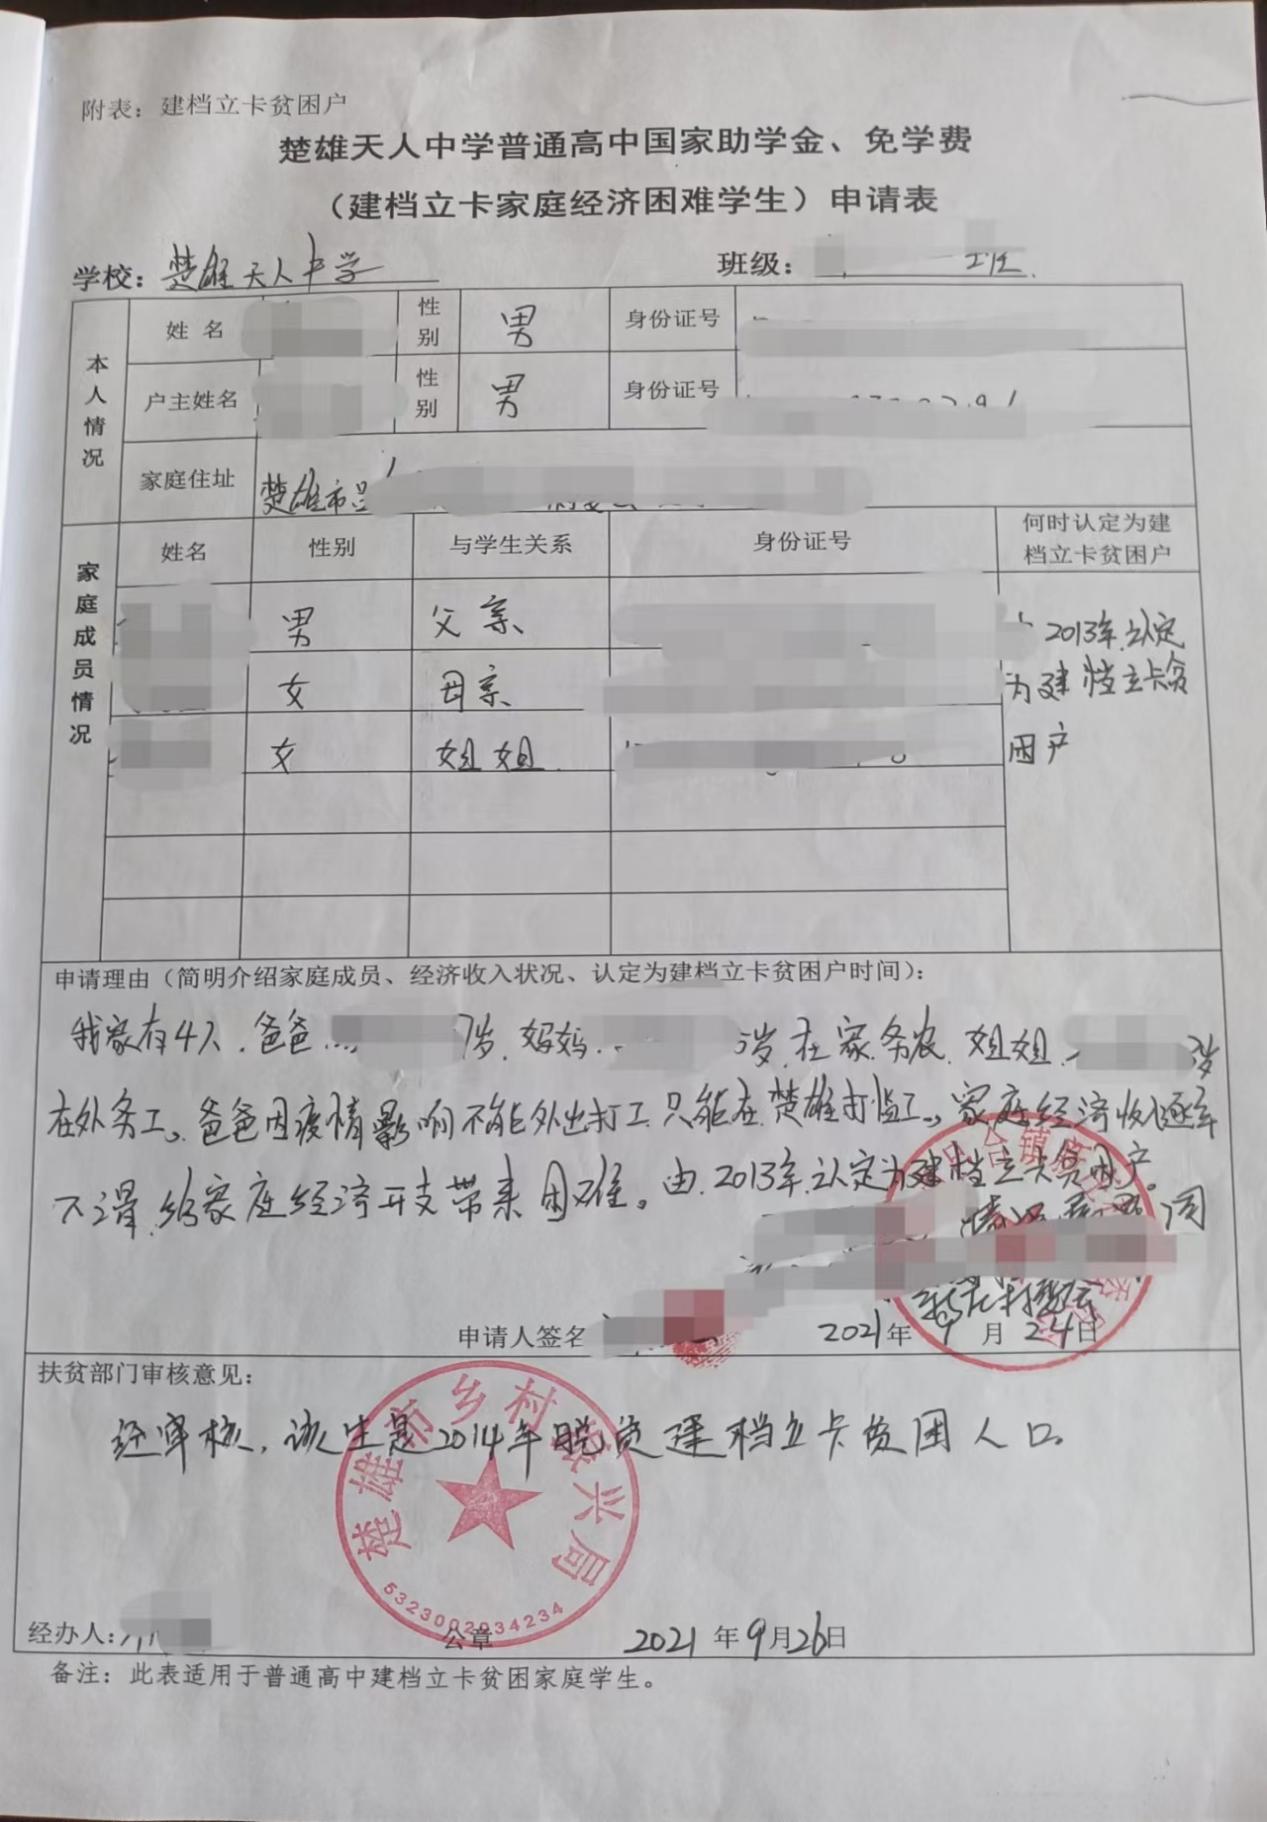 附表：建档立卡贫困户
楚雄天人中学普通高中国家助学金、免学费
（建档立卡家庭经济困难学生）申请表
学校：楚雄天人中学 班级： 班
本人情况
姓名 性别 男 身份证号
户主姓名 性别 男 身份证号
家庭住址 楚雄市吕
家庭成员情况
姓名 性别 与学生关系 身份证号 何时认定为建档立卡贫困户
男 父亲
女 母亲
女 姐姐
2013年认定
为建档立卡贫
困户
申请理由（简明介绍家庭成员、经济收入状况、认定为建档立卡贫困户时间）：
我家有4人，爸爸 岁，妈妈 岁，在家务农，姐姐 岁
在外务工。爸爸因疫情影响不能外出打工，只能在楚雄打临工。家庭经济收入逐年
下滑，给家庭经济开支带来困难。由2013年认定为建档立卡贫困户。
情况属实
村委会
申请人签名 2021年9月24日
扶贫部门审核意见：
经审核，该生是2014年脱贫建档立卡贫困人口。
楚雄市乡村振兴局
5323002034234
经办人： 公章 2021年9月26日
备注：此表适用于普通高中建档立卡贫困家庭学生。